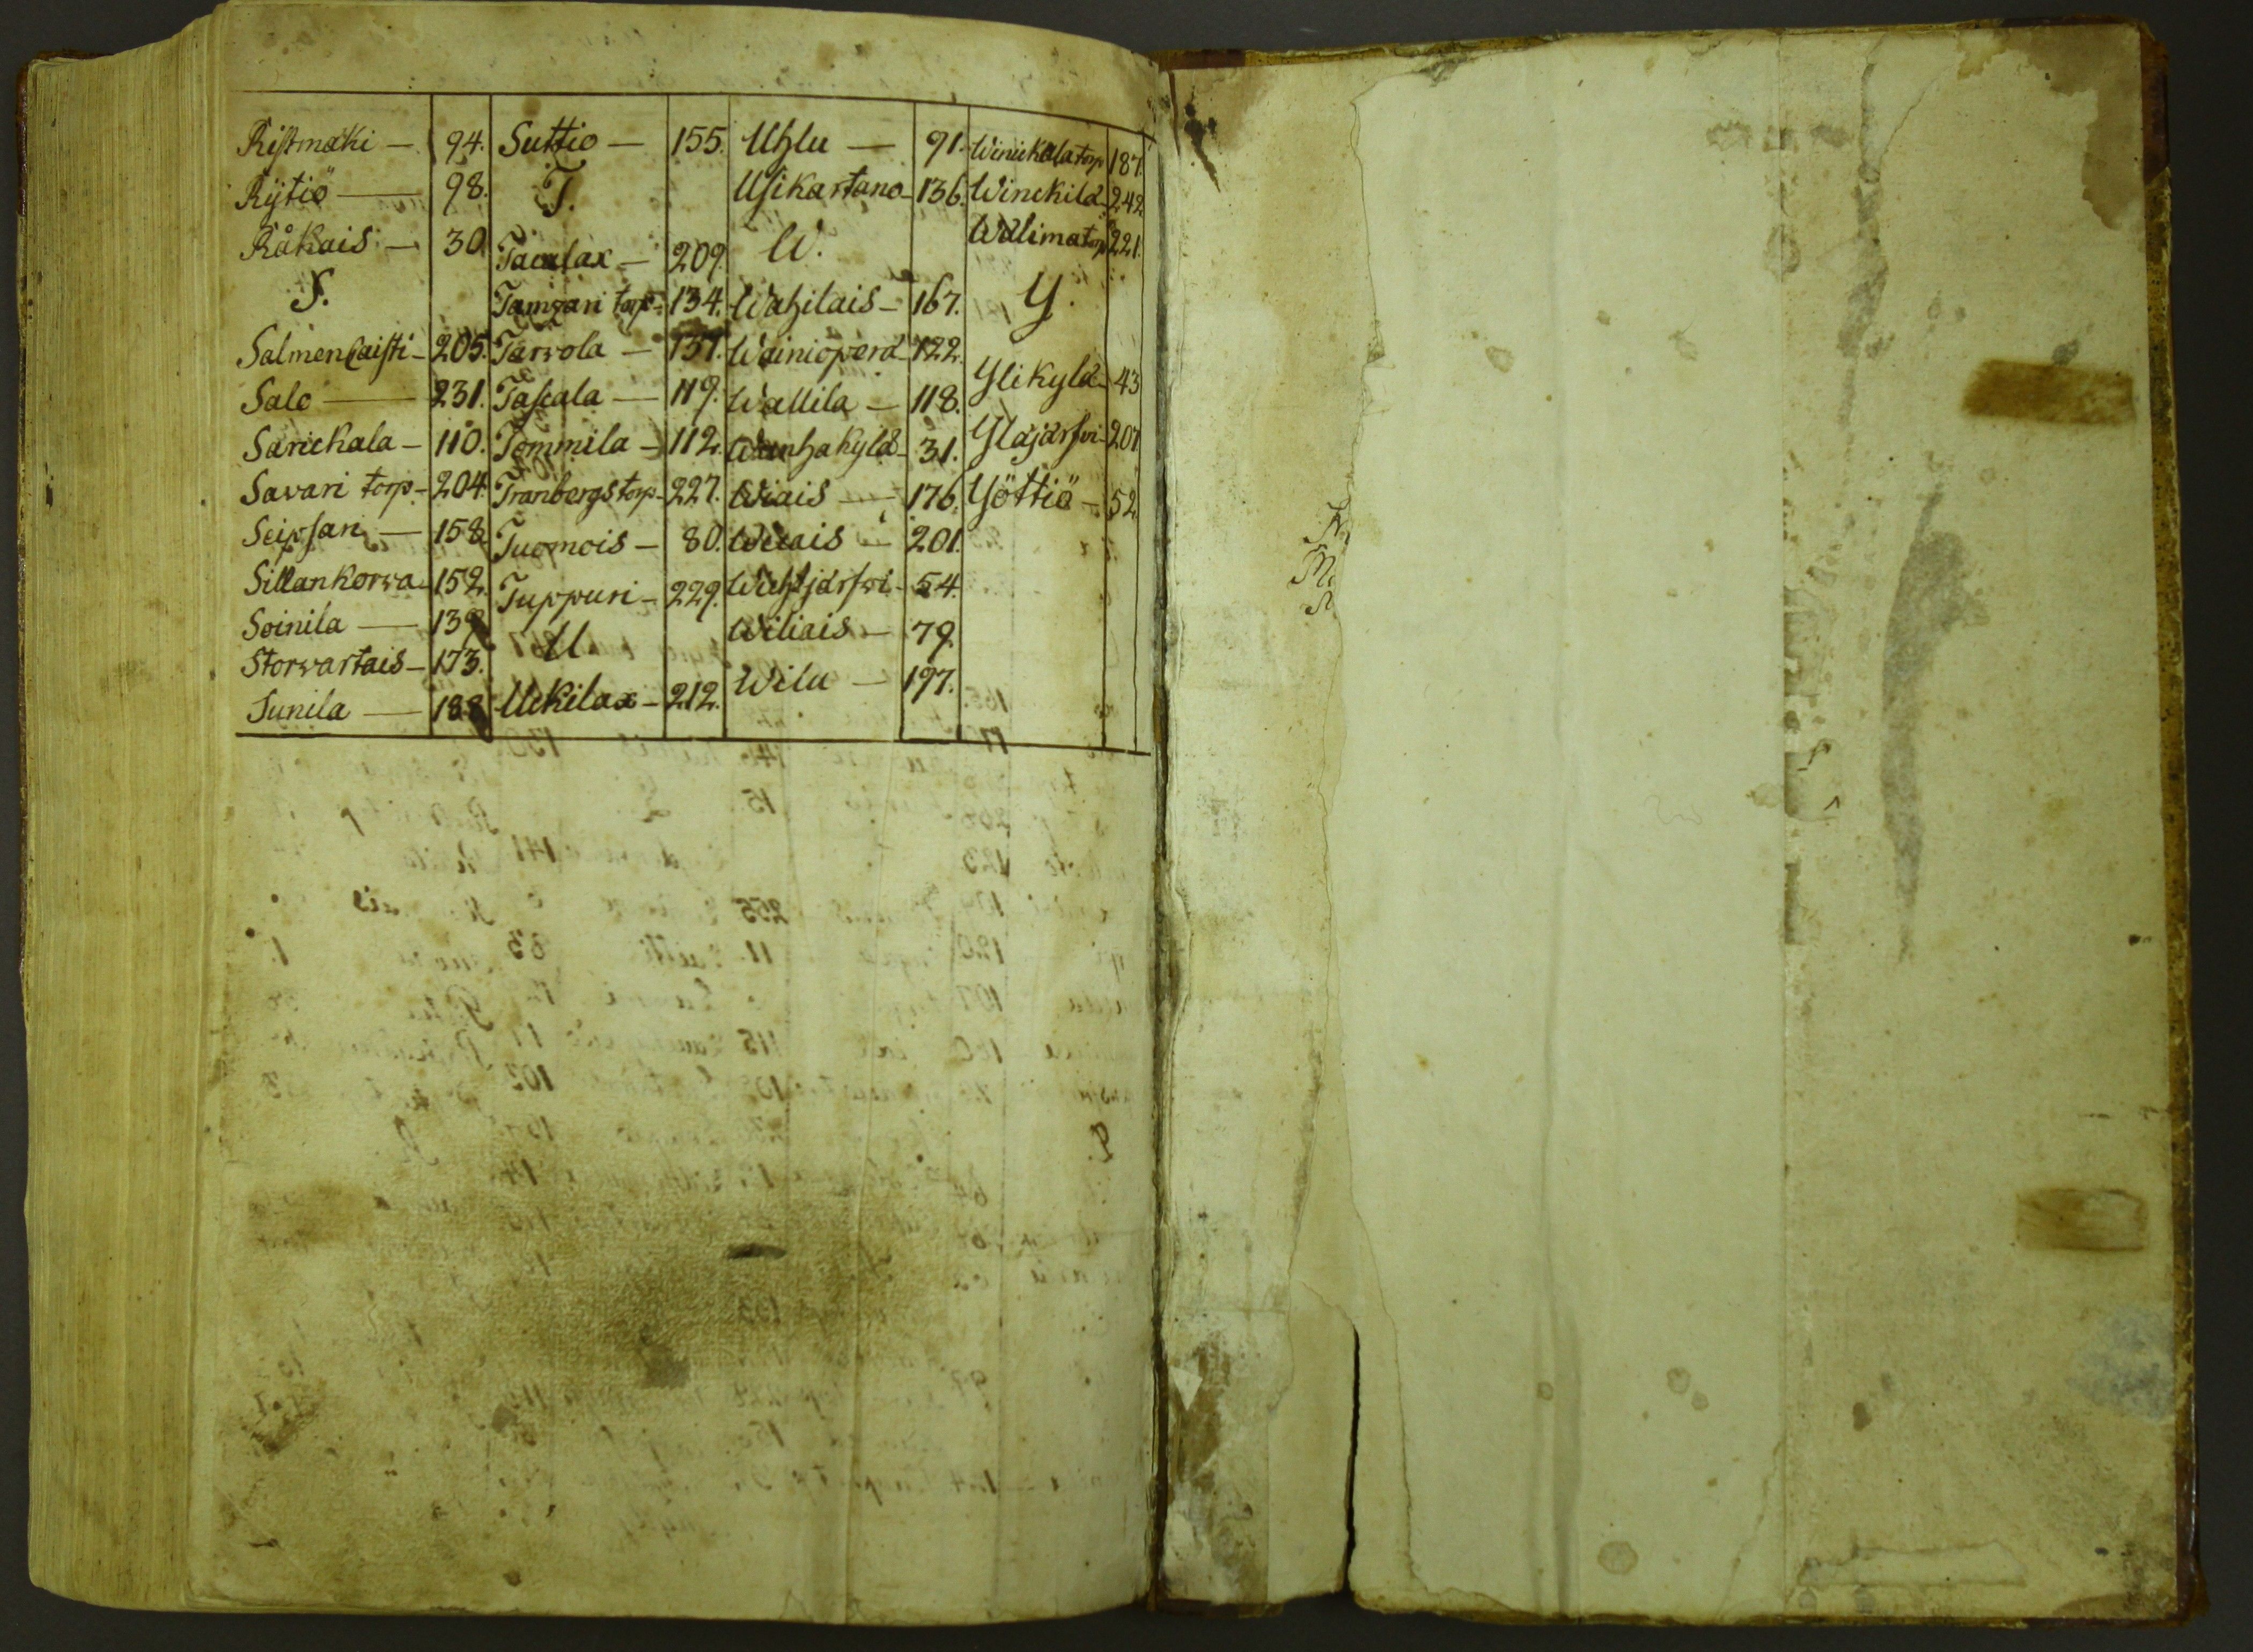 Ristmäki — 94.
Rÿtiö — 98.
Råkais — 30.
S.
Salmenlaisti — 205.
Salo — 231.
Sariekala — 110.
Savari torp — 204.
Seipsari — 158.
Sillankorva — 152.
Soinila — 139.
Storvartais — 173.
Sunila — 188.
Suttio — 155.
T.
209.
torp — 134.
Tarvola — 137.
Tascala — 119.
Tommila — 112.
Tranbergs torp — 227.
Tuomois — 80.
Tuppuri — 229.
U
Uckilax — 212.
Uhlu — 91.
Usikartano — 136.
W.
Wahilais — 167.
Wäiniöperä — 122.
Wallila — 118.
Wanhakylä — 31.
Wiais — 176.
201.
Wiehtjärfvi — 54.
Wiliais — 79.
Wilu — 197.
Winickala torp 187.
Winekilä — 242
Wälima torp 221.
Y.
Ylikylä — 43
Yläjärfvi — 207
Yöttiö — 52